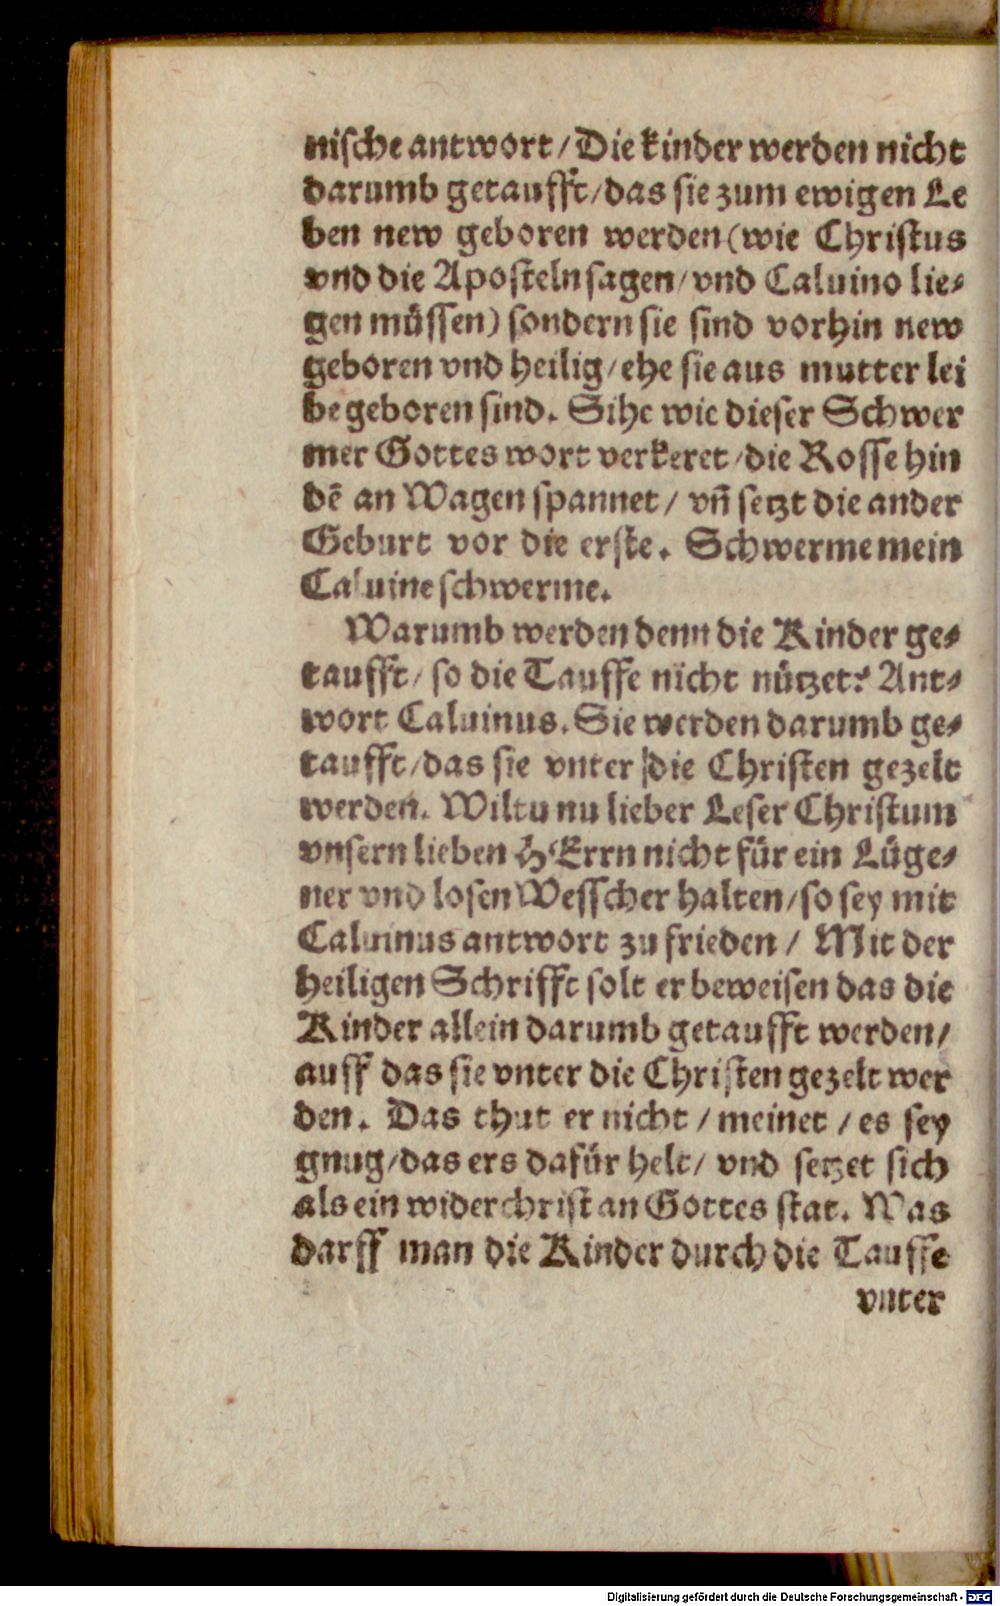 nische antwort / Die kinder werden nicht
darumb getaufft / das sie zum ewigen Le
ben new geboren werden (wie Christus
vnd die Aposteln sagen / vnd Caluino lie-
gen müssen) sondern sie sind vorhin new
geboren vnd heilig / ehe sie aus mutter lei
be geboren sind. Sihe wie dieser Schwer
mer Gottes wort verkeret / die Rosse hin
dē an Wagen spannet / vñ setzt die ander
Geburt vor die erste. Schwerme mein
Caluine schwerme.
Warumb werden denn die Kinder ge-
taufft / so die Tauffe nicht nützet? Ant-
wort Caluinus. Sie werden darumb ge-
taufft / das sie vnter die Christen gezelt
werden. Wiltu nu lieber Leser Christum
vnsern lieben HErrn nicht für ein Lüge-
ner vnd losen Wesscher halten / so sey mit
Caluinus antwort zu frieden / Mit der
heiligen Schrifft solt er beweisen das die
Kinder allein darumb getaufft werden /
auff das sie vnter die Christen gezelt wer
den. Das thut er nicht / meinet / es sey
gnug / das ers dafür helt / vnd setzet sich
als ein widerchrist an Gottes stat. Was
darff man die Kinder durch die Tauffe
vnter
Digitalisierung gefördert durch die Deutsche Forschungsgemeinschaft - DFG